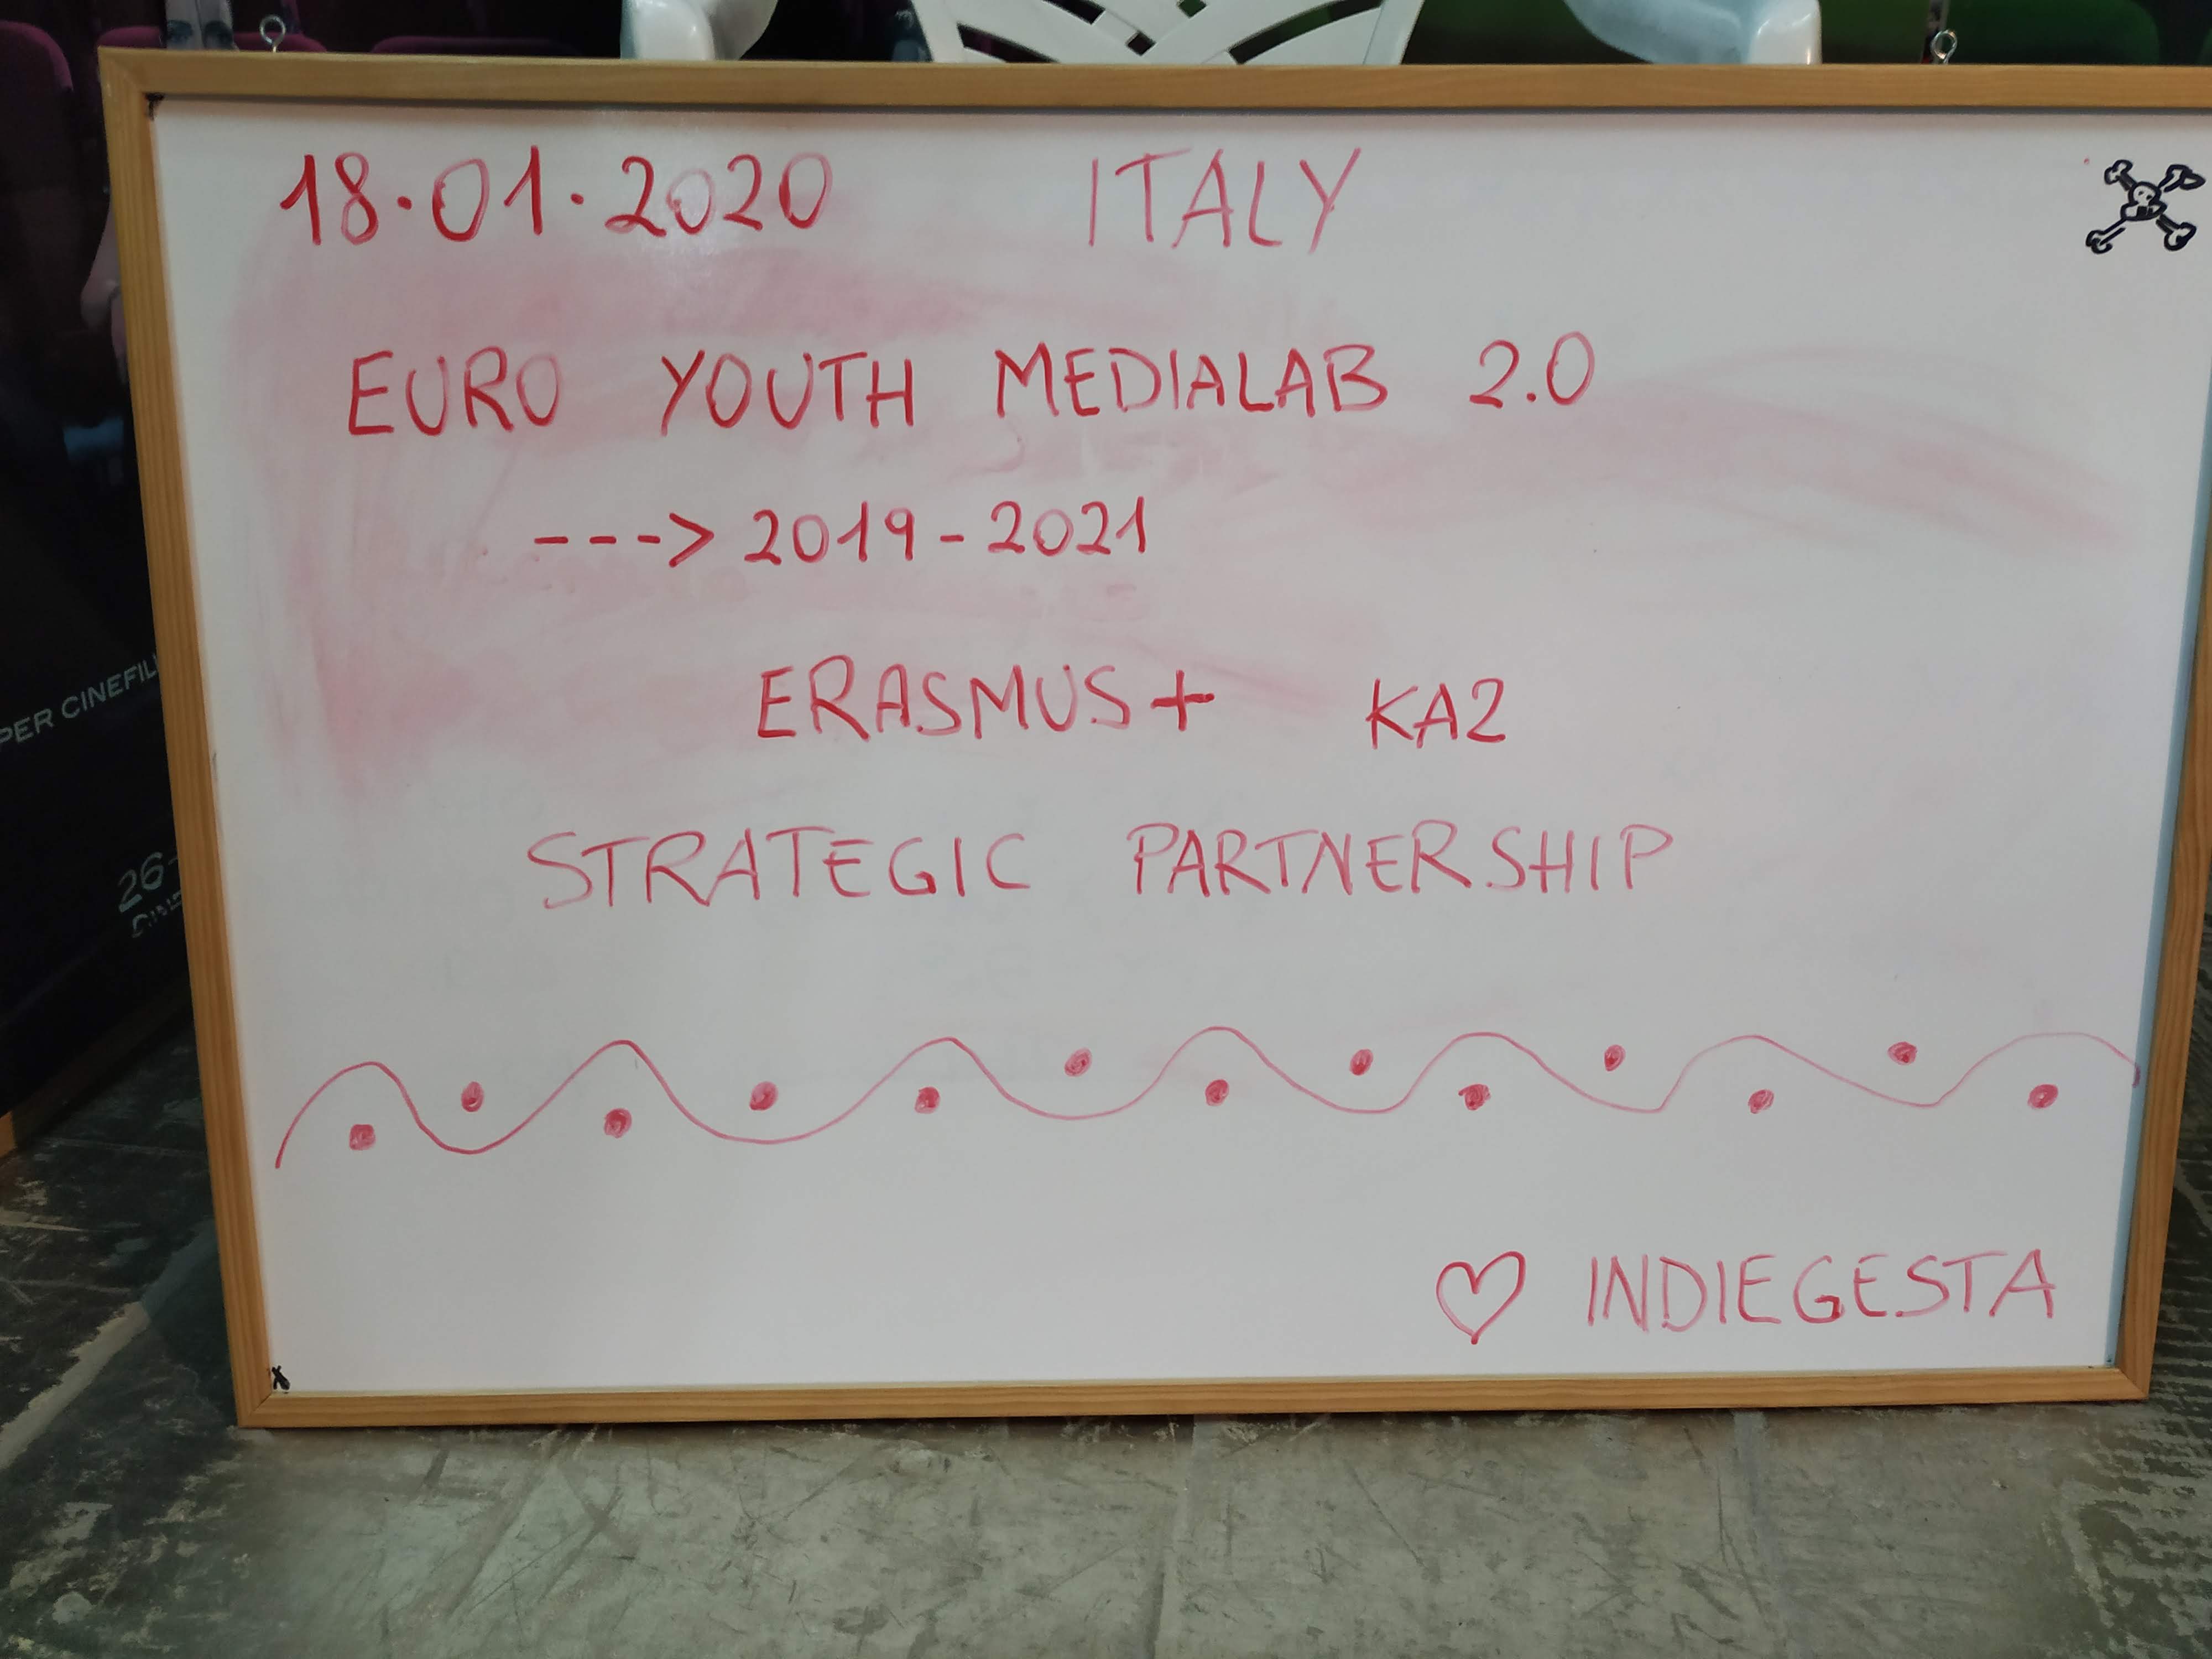 18.01.2020 ITALY
EURO YOUTH MEDIALAB 2.0
---> 2019-2021
ERASMUS+ KA2
STRATEGIC PARTNERSHIP
♡ INDIEGESTA
PER CINEFIL
26-